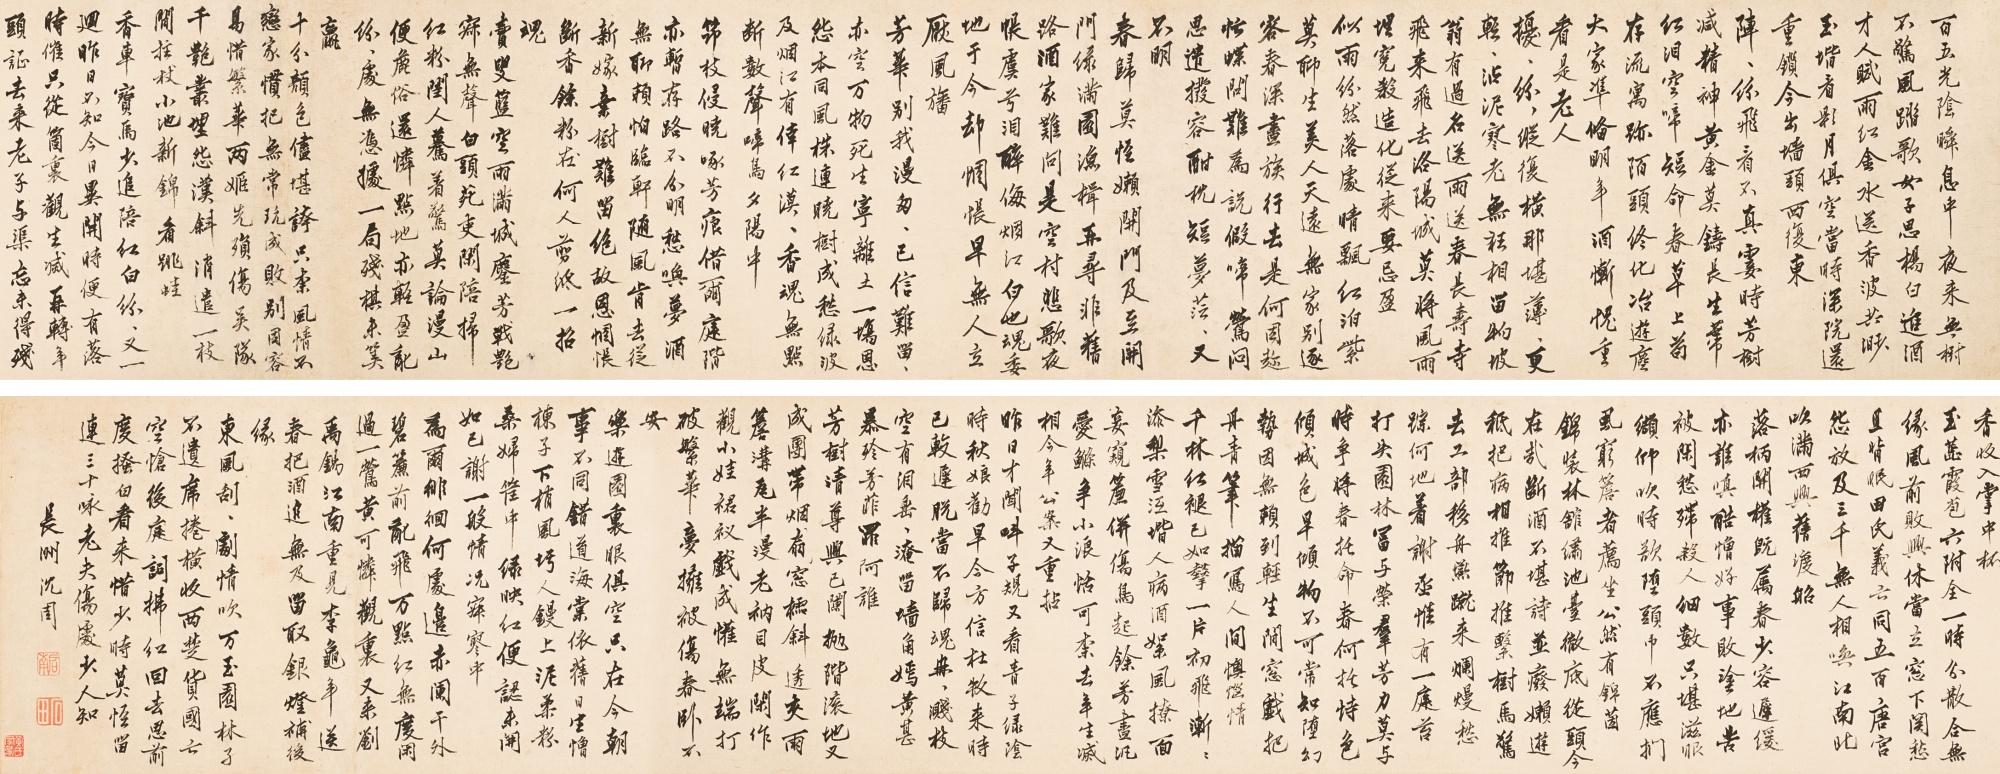 百五光陰瞬息中夜來無樹
不驚風踏歌女子思楊白進酒
才人賦雨紅金水送香波共渺
玉堦看影月俱空當時深院還
重鎖今出墻頭西復東
陣、絲飛看不真霎時芳樹
減精神黃金莫鑄長生蒂
紅淚空啼短命春草上苟
存流寓跡陌頭終化冶遊塵
大家準俻明年酒慚愧重
看是老人
擾、絲、縱復橫那堪薄、更
輕、沾泥寒老無狂相留物坡
翁有過名送雨送春長壽寺
飛來飛去洛陽城莫將風雨
埋冤殺造化從來要忌盈
似雨絲然落處晴飄紅泊紫
莫聊生美人天遠無家別逐
客春深盡族行去是何因趂
忙蝶問難為說假啼鶯悶
思遣撥容酣枕短夢茫、又
不明
春歸莫怪懶開門及至開
門綠滿園漁楫再尋非舊
路酒家難問是空村悲歌夜
帳虞兮淚醉侮烟江白也魂委
地于今却惆悵早無人立
厭風旛
芳華別我漫匆、已信難留、
亦空萬物死生寧離土一塲恩
怨本同風株連曉樹成愁綠波
及烟江有倖紅漠、香魂無點
斷數聲啼鳥夕陽中
筇枝侵曉啄芳痕借爾庭階
亦暫存路不分明愁喚夢酒
無聊賴怕臨軒随風肯去從
新嫁棄樹難留絕故恩惆悵
斷香餘粉在何人剪紙一招
魂
賣叟籃空雨滿城塵芳戰艷
寂無聲白頭苑吏閑陪掃
紅粉閨人驀着驚莫論漫山
便麁俗還憐點地亦輕盈亂
絲、處無憑據一局殘棋未算
贏
十分顏色儘堪誇只柰風情不
戀家慣把無常玩成敗別因容
易惜繁華兩姬先殞傷吳隊
千艷叢埋怨漢斜消遣一枝
閒拄杖小池新錦看跳蛙
香車寶馬少追陪紅白絲、又一
迴昨日不知今日異開時便有落
時催只從箇裏觀生滅再轉年
頭証去來老子與渠忘未得殘
香收入掌中杯
玉蕊霞苞六附全一時分散合無
緣風前敗興休當立窓下關愁
且背眠田氏義亡同五百唐宮
怨放及三千無人相喚江南北
吹滿西興舊渡船
落柄開權既屬春少容遲緩
亦誰嗔酷憎好事敗塗地苦
被閑愁殢殺人細數只堪滋眼
纈仰吹時欲墮頭巾不應捫
風窮簷者薦坐公然有錦茵
錦裝林館繡池臺徹底從頭今
在哉斷酒不堪詩並廢懶遊
秪把病相推節推繫樹馬驚
去工部移舟燕蹴來爛熳愁
踪何地着謝承惟有一庭苔
打失園林富與榮羣芳力莫與
時爭將春托命春何托恃色
傾城色早傾物不可常知墮幻
勢因無賴到輕生閒窓戲把
丹青筆描寫人間懊惱情
千林紅褪已如擎一片初飛漸、
添梨雪沍堦人病酒絮風撩面
妾窺簾併傷鳥起餘芳盡汎
愛鯈爭小浪恬可柰去年生滅
相今年公案又重拈
昨日才聞呌子規又看青子綠陰
時秋娘勸早今方信杜牧來時
已較遲脱當不歸魂冉、濺枝
空有淚垂、淹留墻角嫣黃甚
暴殄芳菲罪阿誰
芳樹清尊興已闌抛階滾地又
成團帶烟扇窓櫺斜透夾雨
簷溝瓦半漫老衲目皮閑作
觀小娃裙衩戲成懽無端打
破繁華夢擁被傷春卧不
安
樂遊園裏眼俱空只在今朝
事不同錯道海棠依舊日生憎
楝子下梢風圬人鏝上泥柔粉
桑婦筐中綠映紅便認未開
如已謝一般情况寂寥中
為爾徘徊何處邊赤闌干外
碧簾前亂飛萬點紅無度閑
過一鶯黃可憐觀裏又來劉
禹錫江南重見李龜年送
春把酒追無及留取銀燈補後
緣
東風刮、劇情吹萬玉園林子
不遺席捲橫收西楚貨國亡
空愴後庭詞掃紅回去思前
度撥白看來惜少時莫怪留
連三十咏老夫傷處少人知
長洲沈周